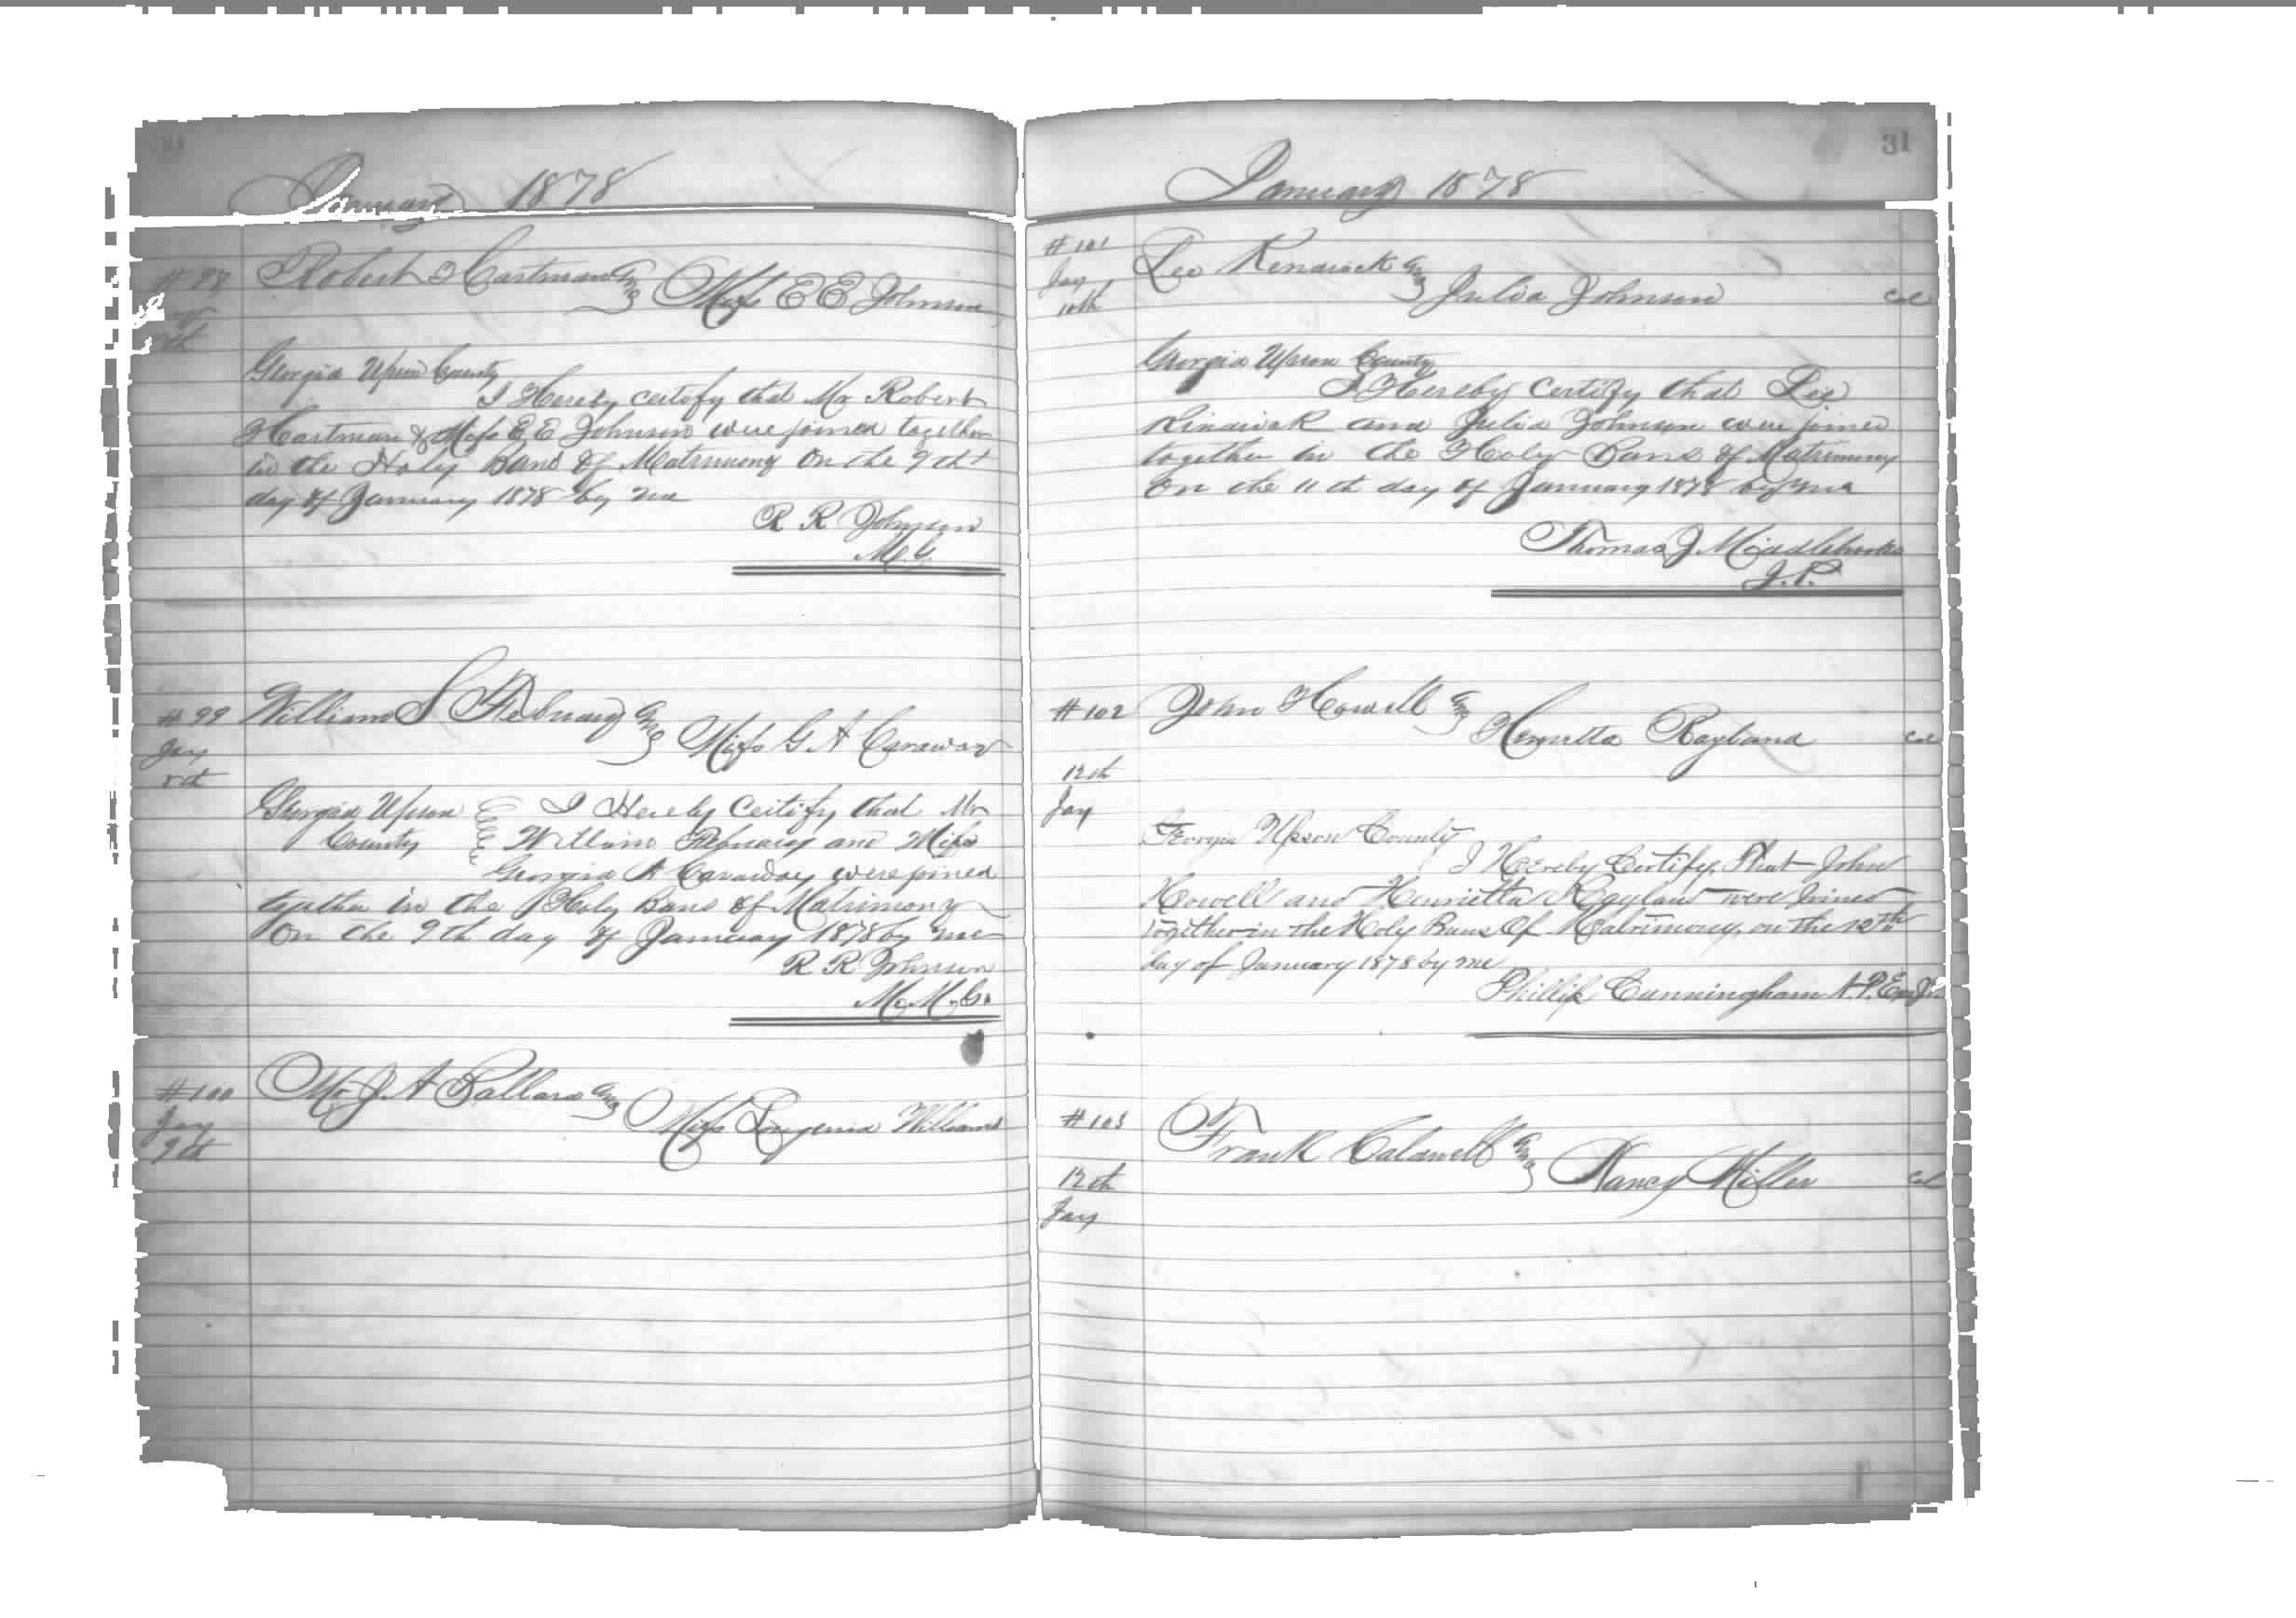 January 1878
#98
Robert Hartman &
Miss E E Johnson
Georgia Upson County
I Hereby certify that Mr Robert
Hartman & Miss E E Johnson were joined together
in the Holy Bans of Matrimony On the 9th
day of January 1878 by me
R R Johnson
M.G.
#99
Jay
8th
William S Febuary &
Miss G A Caraway
Georgia Upson
County
I Hereby Certify that Mr
William Febuary and Miss
Georgia A Caraway were joined
gether in the Holy Bans of Matrimony
On the 9th day of January 1878 by me
R R Johnson
#100
Jay
9th
Mr J. A Ballard &
Miss Williams
31
January 1878
#101
Jay
10th
Lee Kendrick &
Julia Johnson
Col
Georgia Upson County
I Hereby Certify that Lee
Kindrick and Julia Johnson were joined
together in the Holy Bans of Matrimony
On the 11th day of January 1878 by me
Thomas J Middlebrooks
J.P.
#102
12th
Jay
John Howell &
Henrietta Rayland
Col
Georgia Upson County
I Hereby Certify That John
Howell and Henrietta Rayland were Joined
together in the Holy Bans Of Matrimony, on the 12th
day of January 1878 by me
Phillip Cunningham
#103
12th
Jay
Frank Calawell &
Nancy Miller
Col